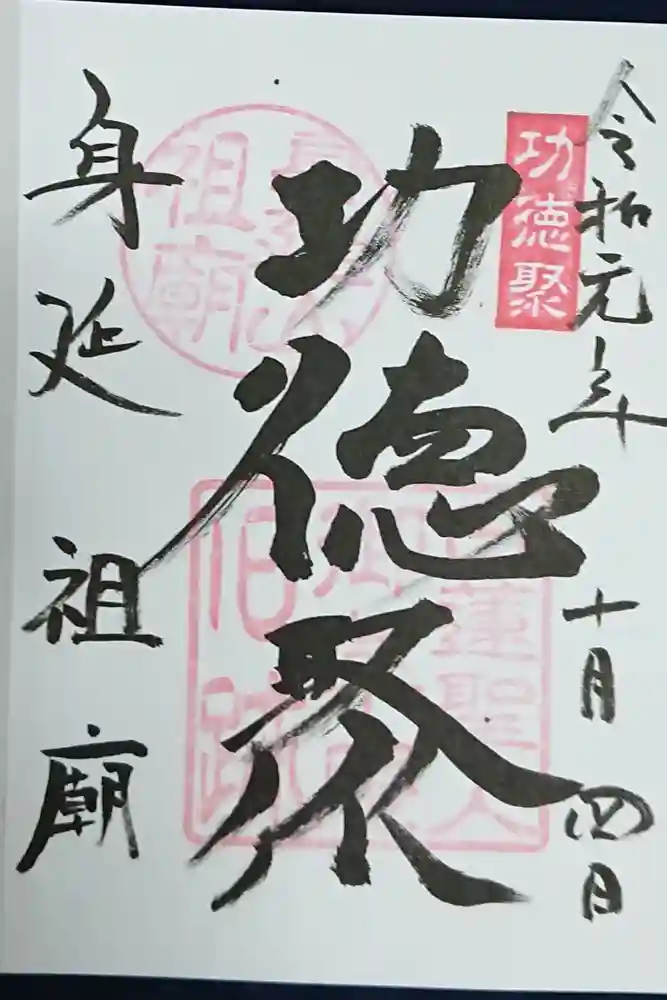 令和元年 十月 四日
功徳聚
功徳聚
祖廟
日蓮聖人
旧跡
身延 祖廟